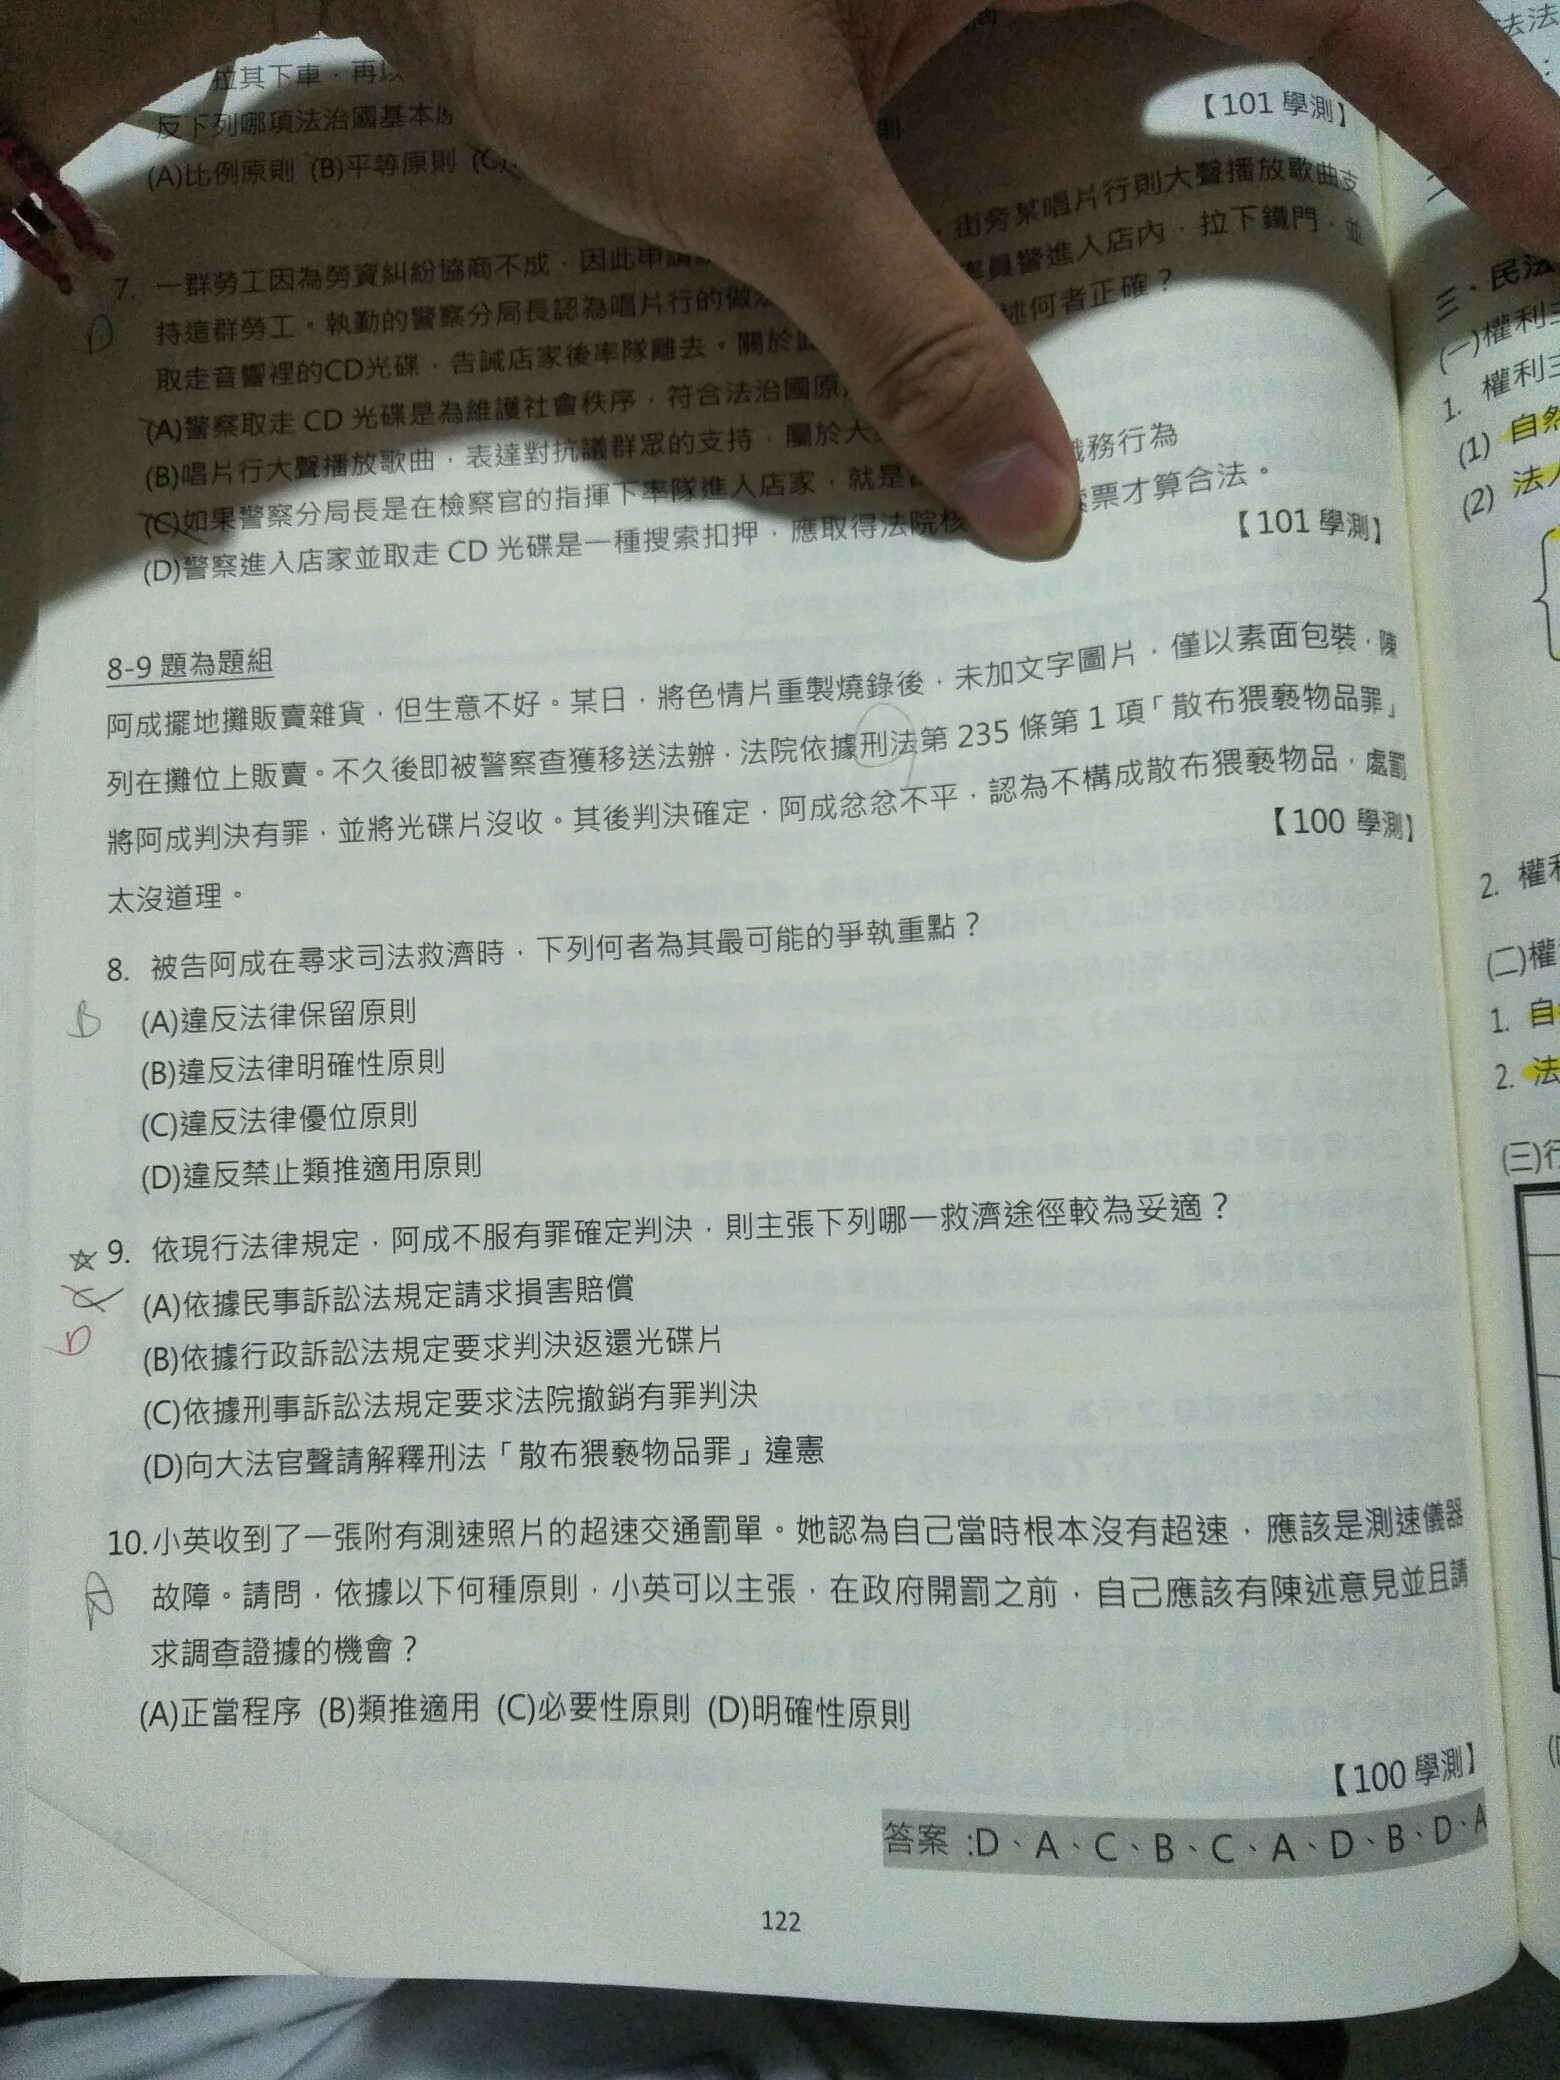 拉其下車，再以
【101 學測】
反下列哪項法治國基本原 則
(A)比例原則 (B)平等原則 (C)
7. 一群勞工因為勞資糾紛協商不成，因此申請 ，街旁某唱片行則大聲播放歌曲支
D
持這群勞工。執勤的警察分局長認為唱片行的做法 率員警進入店內，拉下鐵門，並
取走音響裡的CD光碟，告誡店家後率隊離去。關於此 述何者正確？
(A)警察取走 CD 光碟是為維護社會秩序，符合法治國原
(B)唱片行大聲播放歌曲，表達對抗議群眾的支持，屬於 職務行為
(C)如果警察分局長是在檢察官的指揮下率隊進入店家，就是
(D)警察進入店家並取走 CD 光碟是一種搜索扣押，應取得法院核 索票才算合法。
【101 學測】
8-9 題為題組
阿成擺地攤販賣雜貨，但生意不好。某日，將色情片重製燒錄後，未加文字圖片，僅以素面包裝，陳
列在攤位上販賣。不久後即被警察查獲移送法辦，法院依據刑法第 235 條第 1 項「散布猥褻物品罪」
將阿成判決有罪，並將光碟片沒收。其後判決確定，阿成忿忿不平，認為不構成散布猥褻物品，處罰
太沒道理。
【100 學測】
8. 被告阿成在尋求司法救濟時，下列何者為其最可能的爭執重點？
B
(A)違反法律保留原則
(B)違反法律明確性原則
(C)違反法律優位原則
(D)違反禁止類推適用原則
☆ 9. 依現行法律規定，阿成不服有罪確定判決，則主張下列哪一救濟途徑較為妥適？
D
(A)依據民事訴訟法規定請求損害賠償
(B)依據行政訴訟法規定要求判決返還光碟片
(C)依據刑事訴訟法規定要求法院撤銷有罪判決
(D)向大法官聲請解釋刑法「散布猥褻物品罪」違憲
10.小英收到了一張附有測速照片的超速交通罰單。她認為自己當時根本沒有超速，應該是測速儀器
故障。請問，依據以下何種原則，小英可以主張，在政府開罰之前，自己應該有陳述意見並且請
求調查證據的機會？
(A)正當程序 (B)類推適用 (C)必要性原則 (D)明確性原則
【100 學測】
答案 :D、A、C、B、C、A、D、B、D、A
122
三、民法
(一)權利主
1. 權利主
(1) 自然
(2) 法人
2. 權利
(二)權
1. 自
2. 法
(三)行